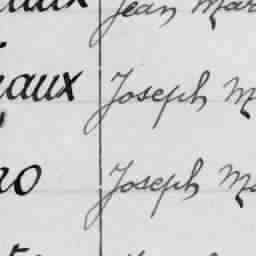 Jean Mar
eaux Joseph M
ro Joseph Ma